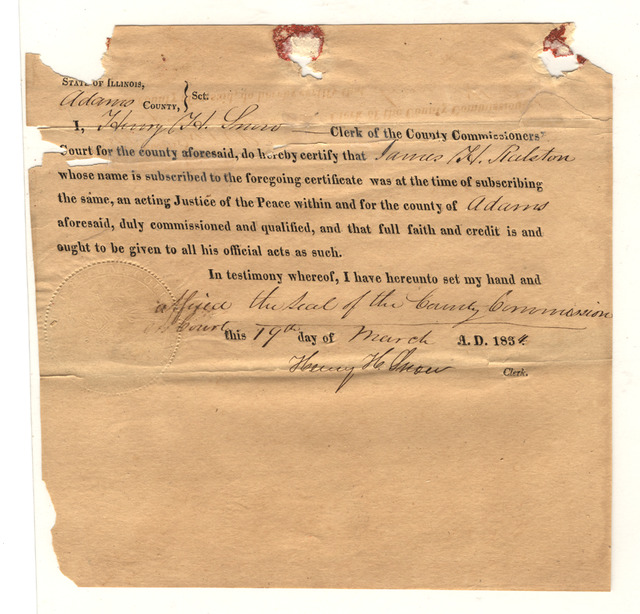 STATE OF ILLINOIS,
Adams COUNTY, } Sct.
I, Henry H. Snow Clerk of the County Commissioners'
Court for the county aforesaid, do hereby certify that James H. Ralston
whose name is subscribed to the foregoing certificate was at the time of subscribing
the same, an acting Justice of the Peace within and for the county of Adams
aforesaid, duly commissioned and qualified, and that full faith and credit is and
ought to be given to all his official acts as such.
In testimony whereof, I have hereunto set my hand and
affixed the seal of the County Commission
ers Court this 19th day of March A. D. 1834.
Henry H. Snow Clerk.